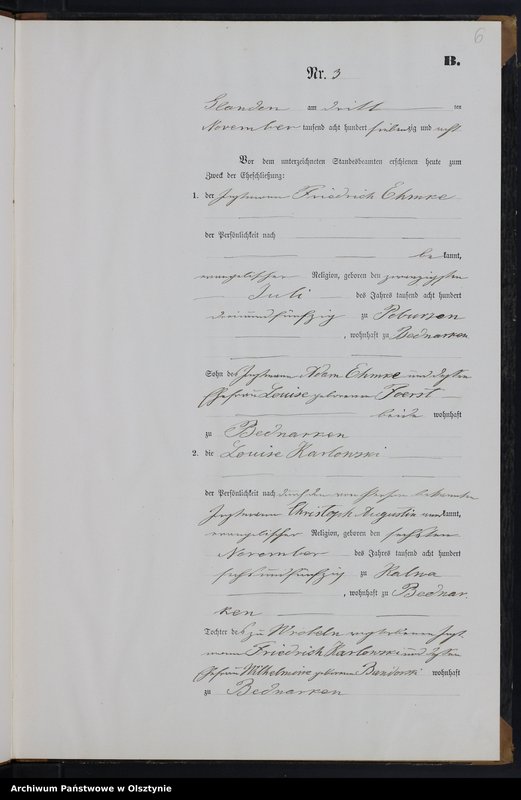 6
B.
Nr. 3
Glanden am dritten
November tausend acht hundert siebenzig und acht
Vor dem unterzeichneten Standesbeamten erschienen heute zum
Zweck der Eheschließung:
1. der Instmann Friedrich Ehmke
der Persönlichkeit nach
bekannt,
evangelischer Religion, geboren den zwanzigsten
Juli des Jahres tausend acht hundert
dreiundfünfzig zu
, wohnhaft zu Bednarken
Sohn des Instmann Adam Ehmke und dessen
Ehefrau Louise geborenen Foerst
beide wohnhaft
zu Bednarken
2. die Louise Karlowski
der Persönlichkeit nach durch den von Person bekannten
Instmann Christoph Augustin anerkannt,
evangelischer Religion, geboren den sechsten
November des Jahres tausend acht hundert
sechsundfünfzig zu Kalwa
, wohnhaft zu Bednar-
ken
Tochter des zu verstorbenen Inst-
mann Friedrich Karlowski und dessen
Ehefrau Wilhelmine geborenen wohnhaft
zu Bednarken
Archiwum Państwowe w Olsztynie